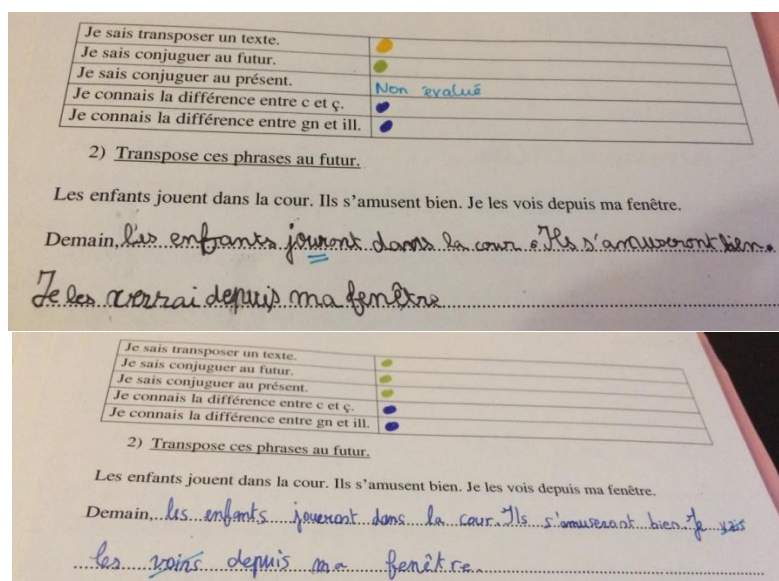 Je sais transposer un texte.
Je sais conjuguer au futur.
Je sais conjuguer au présent. Non évalué
Je connais la différence entre c et ç.
Je connais la différence entre gn et ill.
2) Transpose ces phrases au futur.
Les enfants jouent dans la cour. Ils s'amusent bien. Je les vois depuis ma fenêtre.
Demain, les enfants jouront dans la cour. Ils s'amuseront bien.
Je les verrai depuis ma fenêtre
Je sais transposer un texte.
Je sais conjuguer au futur.
Je sais conjuguer au présent.
Je connais la différence entre c et ç.
Je connais la différence entre gn et ill.
2) Transpose ces phrases au futur.
Les enfants jouent dans la cour. Ils s'amusent bien. Je les vois depuis ma fenêtre.
Demain, les enfants joueront dans la cour. Ils s'amuseront bien. Je vais
les voirs depuis ma fenêtre.